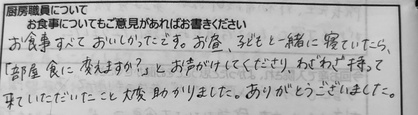 厨房職員について
お食事についてもご意見があればお書きください
お食事すべておいしかったです。お昼、子どもと一緒に寝ていたら、
「部屋食に変えますか?」とお声がけしてくださり、わざわざ持って
来ていただいたこと大変助かりました。ありがとうございました。